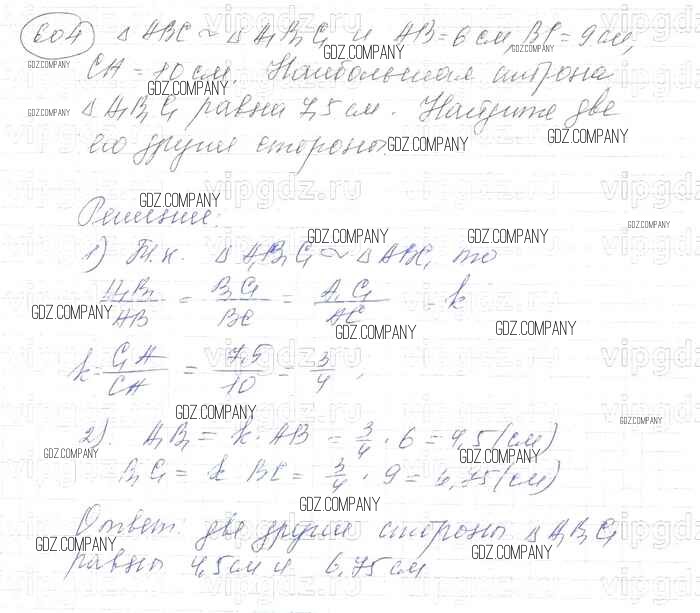 604 △ABC ~ △A₁B₁C₁ и AB = 6 см, BC = 9 см,
CA = 10 см. Наибольшая сторона
△A₁B₁C₁ равна 7,5 см. Найдите две
его другие стороны.
Решение:
1) Т.к. △A₁B₁C₁ ~ △ABC, то
A₁B₁/AB = B₁C₁/BC = A₁C₁/AC = k
k = C₁A₁/CA = 7,5/10 = 3/4,
2). A₁B₁ = k · AB = 3/4 · 6 = 4,5 (см)
B₁C₁ = k BC = 3/4 · 9 = 6,75 (см)
Ответ: две другие стороны △A₁B₁C₁
равны 4,5 см и 6,75 см
GDZ.COMPANY
vipgdz.ru